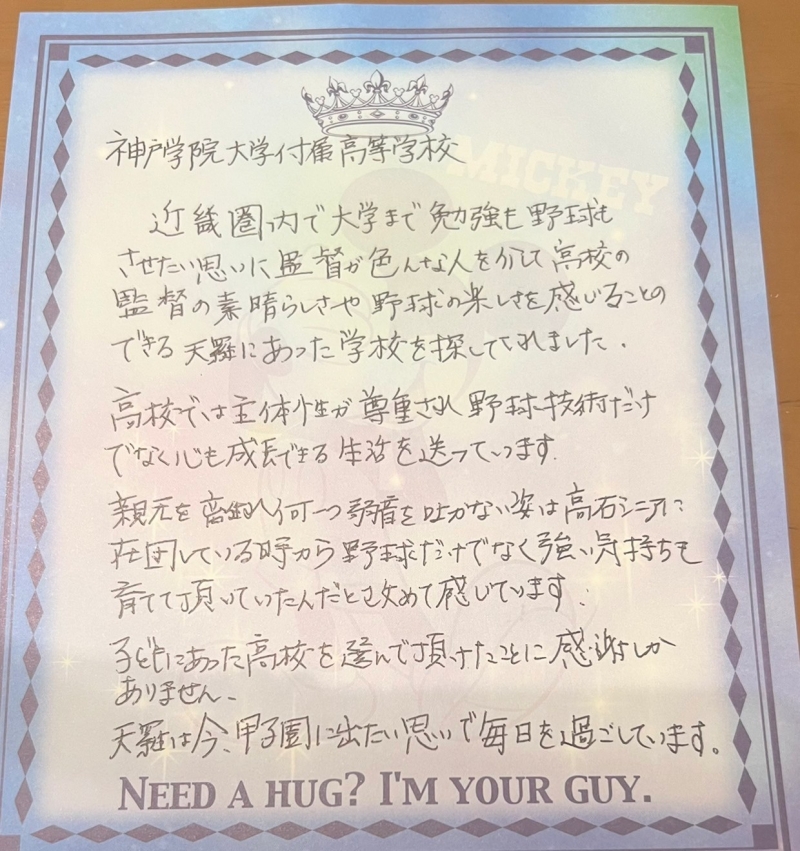 神戸学院大学付属高等学校
MICKEY
近畿圏内で大学まで勉強も野球も
させたい思いに監督が色んな人を介して高校の
監督の素晴らしさや野球の楽しさを感じることの
できる天羅にあった学校を探してくれました.
高校では主体性が尊重され野球技術だけ
でなく心も成長できる生活を送っています.
親元を離れ何一つ弱音を吐かない姿は高石シニアに
在団している時から野球だけでなく強い気持ちも
育てて頂いていたんだと改めて感じています.
子どもにあった高校を選んで頂けたことに感謝しか
ありません.
天羅は今、甲子園に出たい思いで毎日を過ごしています。
NEED A HUG? I'M YOUR GUY.